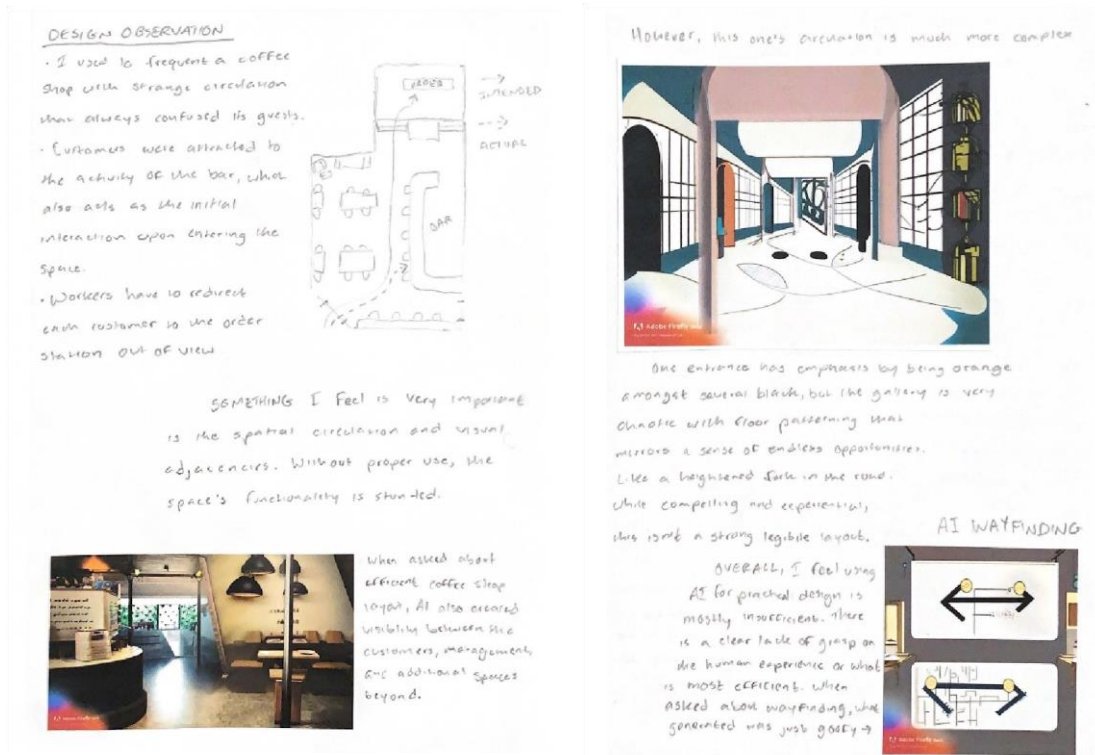 DESIGN OBSERVATION
· I used to frequent a coffee
shop with strange circulation
that always confused its guests.
· Customers were attracted to
the activity of the bar, what
also acts as the initial
interaction upon entering the
space.
· Workers have to redirect
each customer to the order
station out of view
ORDER
INTENDED
ACTUAL
BAR
SOMETHING I feel is very important
is the spatial circulation and visual
adjacencies. Without proper use, the
space's functionality is stunted.
When asked about
efficient coffee shop
layout, AI also created
visibility between the
customers, management,
and additional spaces
beyond.
Adobe Firefly
However, this one's circulation is much more complex
Adobe Firefly
One entrance has emphasis by being orange
amongst several black, but the gallery is very
chaotic with floor patterning that
mirrors a sense of endless opportunities.
Like a heightened fork in the road.
While compelling and experiential,
this isn't a strong legible layout.
AI WAYFINDING
OVERALL, I feel using
AI for practical design is
mostly insufficient. There
is a clear lack of grasp on
the human experience or what
is most efficient. When
asked about wayfinding, what
generated was just goofy →
Adobe Firefly